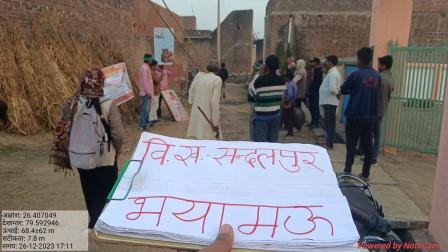 वि.ख. सन्दलपुर
भयामऊ
अक्षांश: 26.407049
देशान्तर: 79.592946
ऊंचाई: 68.4±62 m
सटीकता: 7.8 m
समय: 26-12-2023 17:11
Powered by NoteCam